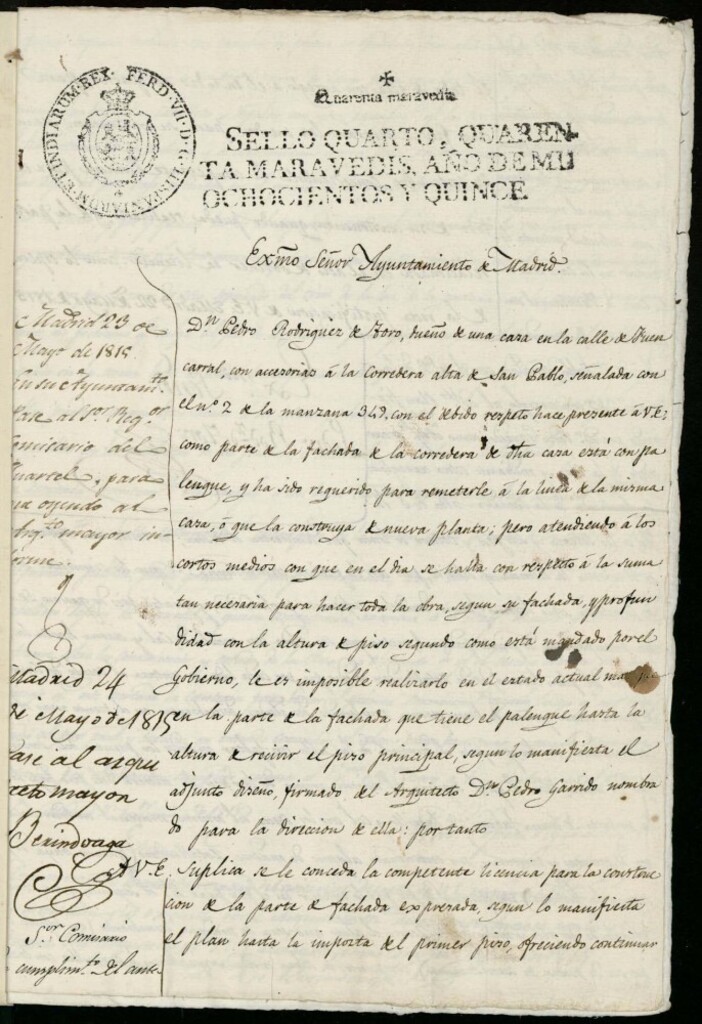 FERD·VII·D·G·HISPANIARUM·ET INDIARUM·REX·
Quarenta maravedis
SELLO QUARTO, QUAREN-
TA MARAVEDIS, AÑO DE MIL
OCHOCIENTOS Y QUINCE
Exmo Señor Ayuntamiento de Madrid.
Dn Pedro Rodriguez de Toro, dueño de una casa en la calle de Fuen
carral, con accesorias á la Corredera alta de San Pablo, señalada con
el nº 2 de la manzana 349, con el debido respeto hace presente á V.E:
como parte de la fachada de la corredera de dha casa está con pa
lenque, y ha sido requerido para remeterle á la linea de la misma
casa, ó que la construya de nueva planta; pero atendiendo á los
cortos medios con que en el dia se halla con respecto á la suma
tan necesaria para hacer toda la obra, segun su fachada, y profun
didad con la altura de piso segundo como está mandado por el
Gobierno, le es imposible realizarlo en el estado actual mas que
en la parte de la fachada que tiene el palenque hasta la
altura de recivir el piso principal, segun lo manifiesta el
adjunto diseño, firmado del Arquitecto Dn Pedro Garrido nombra
do para la direccion de ella: por tanto
A V.E. Suplica se le conceda la competente licencia para la construc
cion de la parte de fachada expresada, segun lo manifiesta
el plan hasta la imposta del primer piso, ofreciendo continuar
Madrid 23 de
Mayo de 1815.
En su Ayuntamto
Pase al Sor Regor
Comisario del
Quartel, para
que oyendo al
Arqto mayor in-
forme.
Madrid 24
de Mayo de 1815
Pase al arqui
tecto mayor
Berindoaga
Sor Comisario
cumplimto del ante